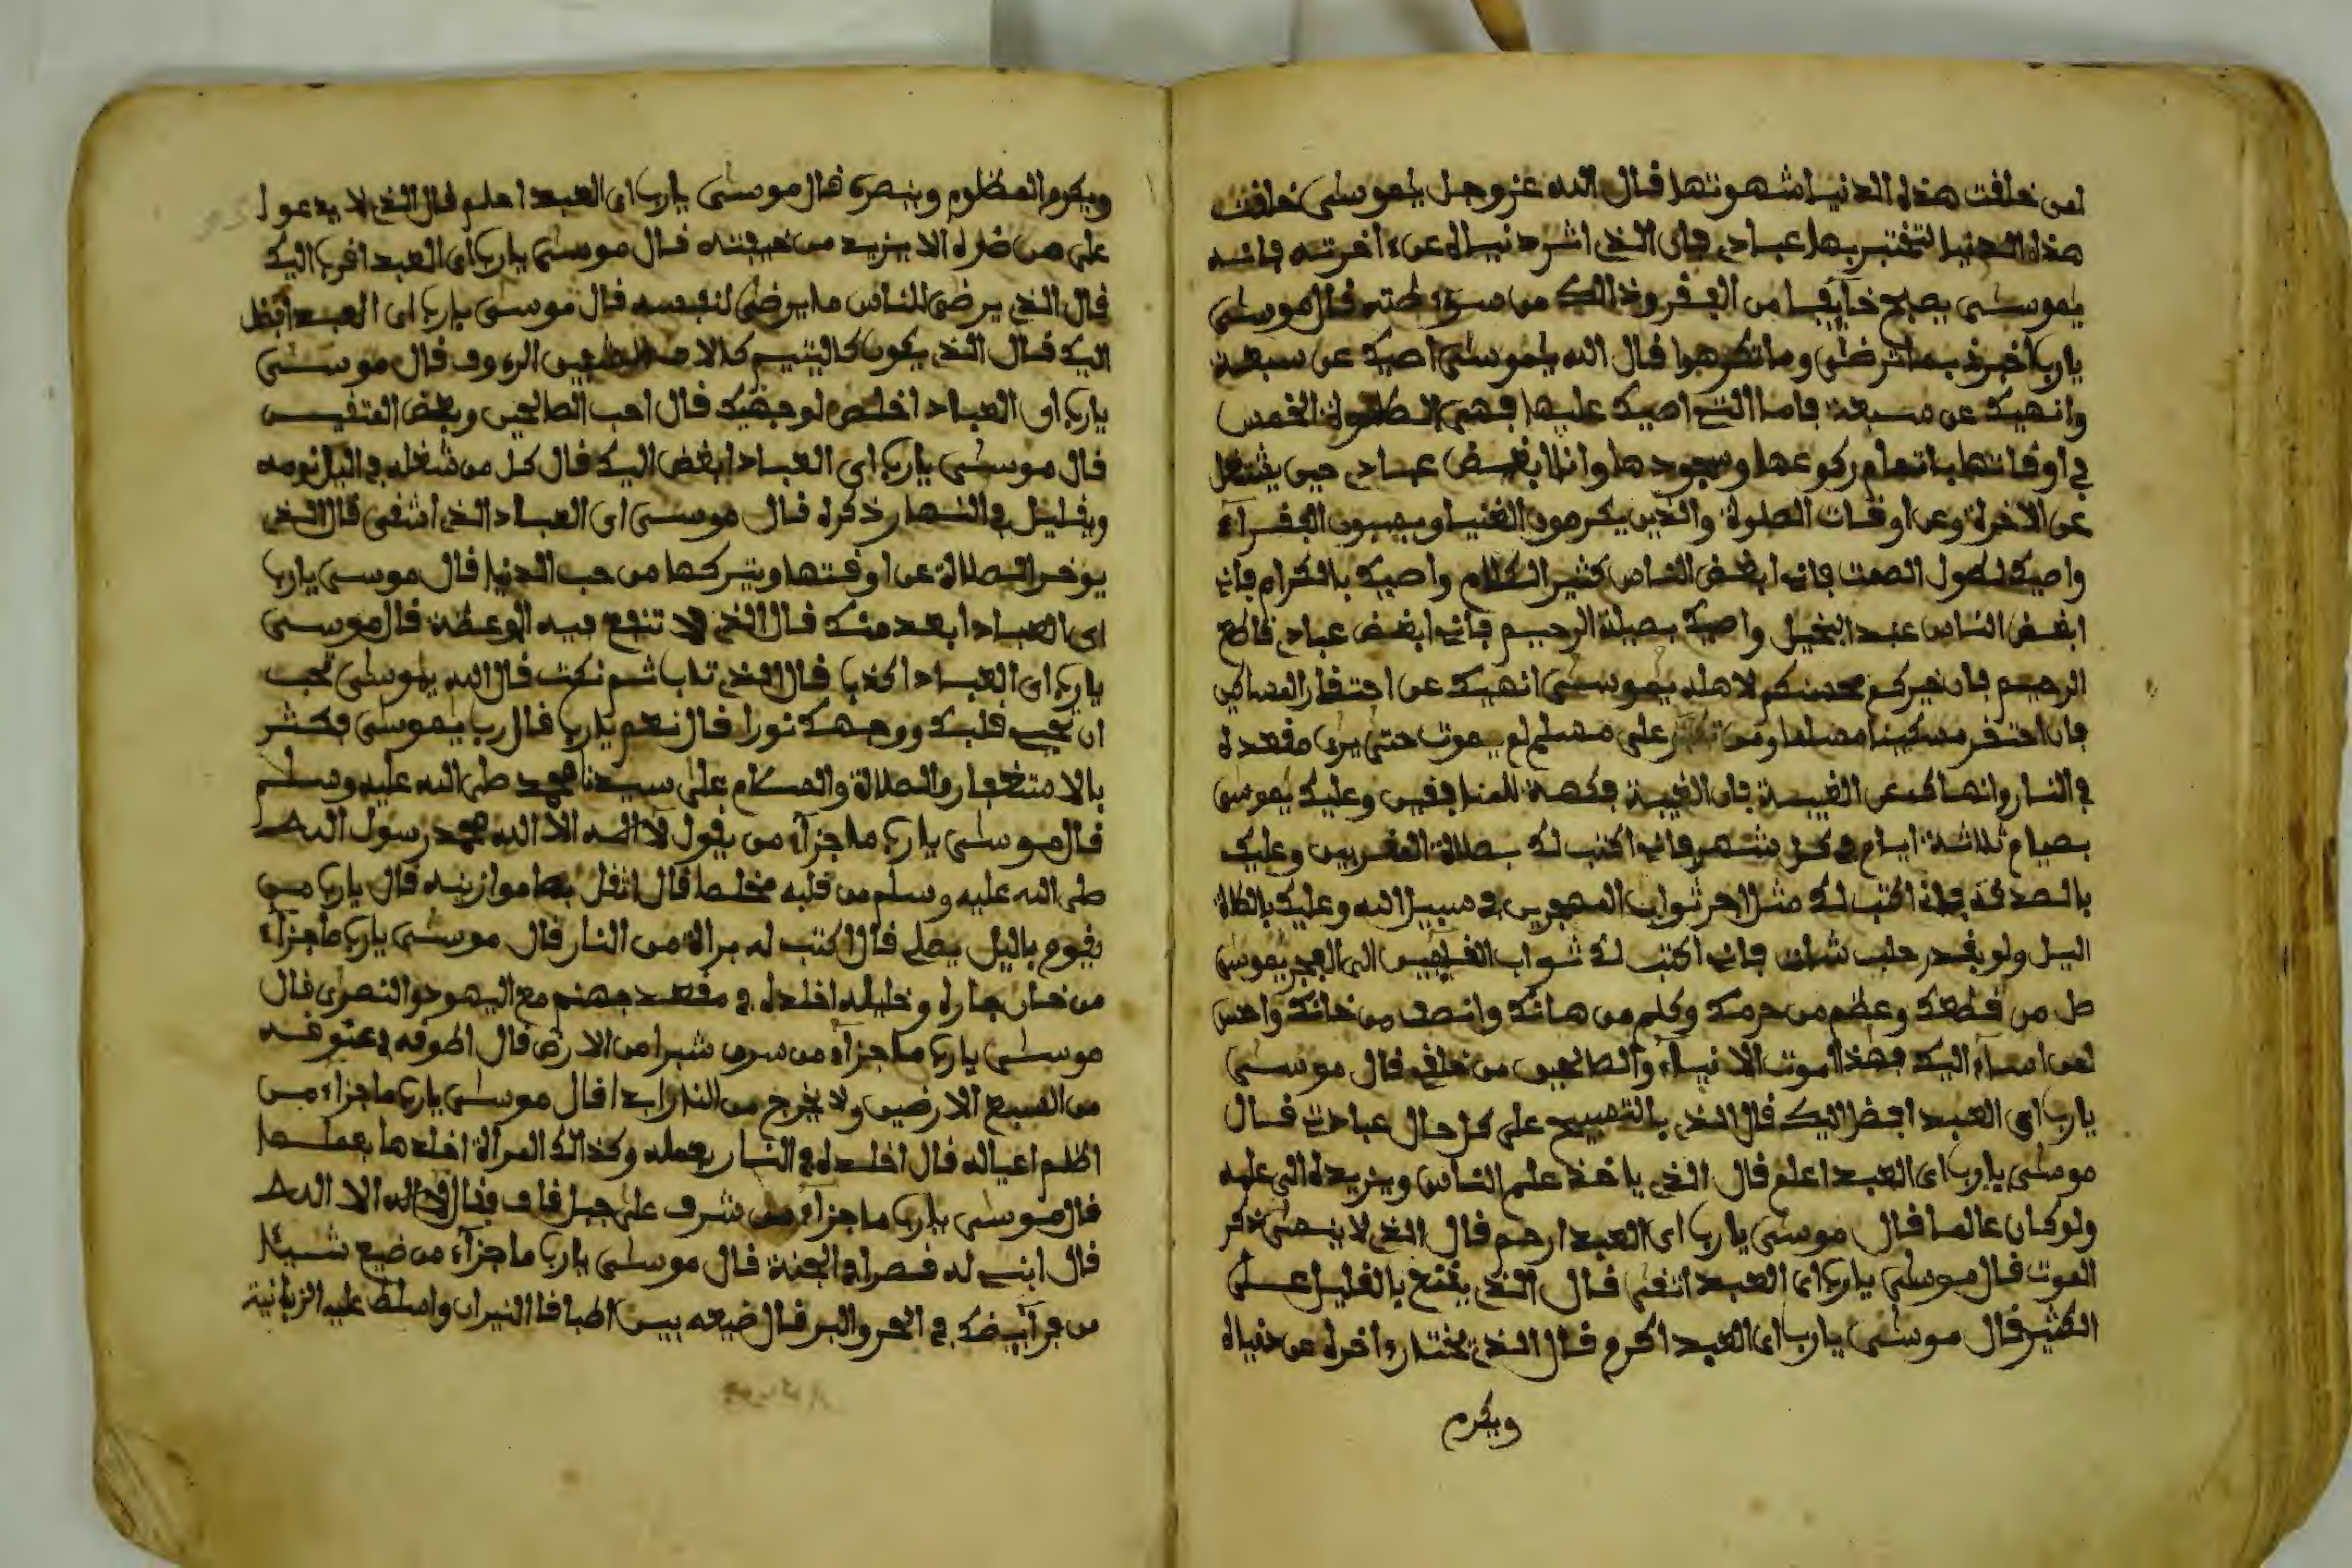 لمن خلقت هذه الدنيا شهوتها قال الله عز وجل يموسى خلقت
هذه الدنيا لتختبر بها عبادي فان الذي اثر دنياه عن ءاخرته فانه
يموسى يصبح خآيفا من الفقر وذالك من سوء طته قال موسى
يارب اخبرني بما ترضى وما تكرهوا قال الله يموسى اصيك عن سبعة
وانهيك عن سبعة فاما التي اصيك عليها فهي الصلوة الخمس
في اوقاتها باتمام ركوعها وسجودها وانا ابغض عبادي حين يشتغل
عن الاخرة وعن اوقات الصلوة والذين يكرمون الغنيا ويهبون الفقرآء
واصيك لطول الصمت فاني ابغض الناس كثير الكلام واصيك بالكرام فاني
ابغض الناس عبد البخيل واصيك بصيلة الرحيم فاني ابغض عبادي قاطع
الرحيم فان خيركم محسنكم لاهله يموسى انهيك عن احتقار المساكن
فان احتقر مسكينا مصلما ومن تكبر على مسلم لم يموت حتى يرى مقعده
في النار وانهاك عن الغيبة فان الغيبة فكهة للمنافقين وعليك يموسى
بصيام ثلاثة ايام في كل شهر فاني اكتب لك بصلاة المقربين وعليك
بالصدقة فاني اكتب لك مثل اجر ثواب المهجرين في سبيل الله وعليك بالصلاة
اليل ولو بقدر حلب شات فاني اكتب لك ثواب القيمين الى الفجر يموسى
صل من قطعك وعظم من حرمك وكلم من هانك وانصف من خانك واحسن
لمن اسآء اليك فهذا موت الانبيآء والصالحين من خلقي قال موسى
يارب اي العبد افضل اليك قال الذي بالتسبيح على كل حال عبادتي قال
موسى يارب اي العبد اعلم قال الذي ياخذ علم الناس ويزيده الى علمه
ولو كان عالما قال موسى يارب اي العبد ارحم قال الذي لا ينصى ذكر
الموت قال موسى يارب اي العبد اتقى قال الذي يقنع بالقليل على
الكثير قال موسى يارب اي العبد اكرم قال الذي يختار ءاخره عن دنياه
ويكرم
ويكرم المظلوم وينصره قال موسى يارب اي العبد احلم قال الذي لا يدعوا
على من ضره الا يزيد من خيبته قال موسى يارب اي العبد اقرب اليك
قال الذي يرضى للناس ما يرضى لنفسه قال موسى يارب اي العبد افضل
اليك قال الذي يكون كاليتيم كالا الرءوف قال موسى
يارب اي العباد اخلص لوجهك قال احب الصالحين وبغض
قال موسى يارب اي العباد ابغض اليك قال كل من شغله في اليل نومه
ويقليل في النهار ذكره قال موسى اي العباد الذي اشقى قال الذي
يوخر الصلاة عن اوقتها ويتركها من حب الدنيا قال موسى يارب
اي العباد ابعد منك قال الذي لا تنفع فيه الوعظة قال موسى
يارب اي العباد اكذبا قال الذي تاب ثم نكث قال الله يموسى تحب
ان نجيب قلبك ووجهك نورا قال نعم يارب قال رب يموسى فكثر
بالاستغفار والصلاة والسلام على سيدنا محمد صلى الله عليه وسلم
قال موسى يارب ما جزآء من يقول لا اله الا الله محمد رسول الله
صلى الله عليه وسلم من قلبه مخلصا قال اثقل بها موازينه قال يارب من
يقوم باليل يصلى قال اكتب له براة من النار قال موسى يارب ما جزآء
من خان جاره وخليله اخلده في مقعد جهنم مع اليهود والنصرى قال
موسى يارب ما جزآء من سرق شبرا من الارض قال اطوفه في عنوقه
من السبع الارضين ولا يخرج من النار ابدا قال موسى يارب ما جزاء من
اظلم اعياله قال اخلده في النار بعمله وكذالك المرأة اخلدها بعملها
قال موسى يارب ما جزآء من شرف على جبل قاف فقال لا اله الا الله
قال ابني له قصرا في الجنة قال موسى يارب ما جزآء من ضيع شيئا
من فرآيضك في البحر والبر قال ضيعه بين اطباقا النيران واسلط عليه الزبانية